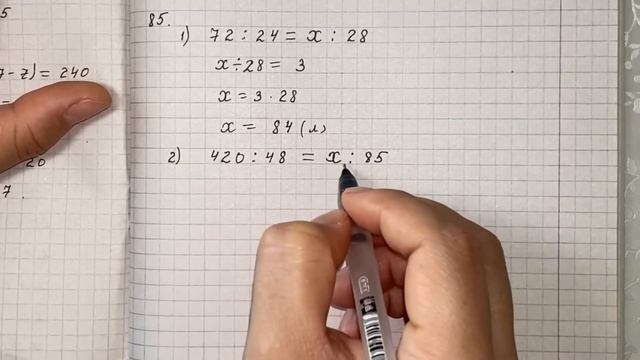 5
7 - z) = 240
20
7.
85.
1) 72 : 24 = x : 28
x ÷ 28 = 3
x = 3 · 28
x = 84 (л)
2) 420 : 48 = x : 85